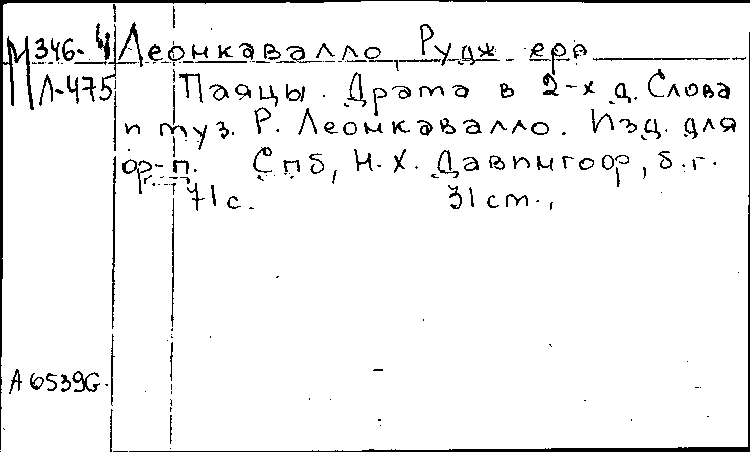 М 346-4 Леонкавалло, Руджеро
Л-475 Паяцы. Драма в 2-х д. Слова
и муз. Р. Леонкавалло. Изд. для
ф-п. Спб, Н. Х. Давингоф, б. г.
71 с. 31 см.,
А 6539G.